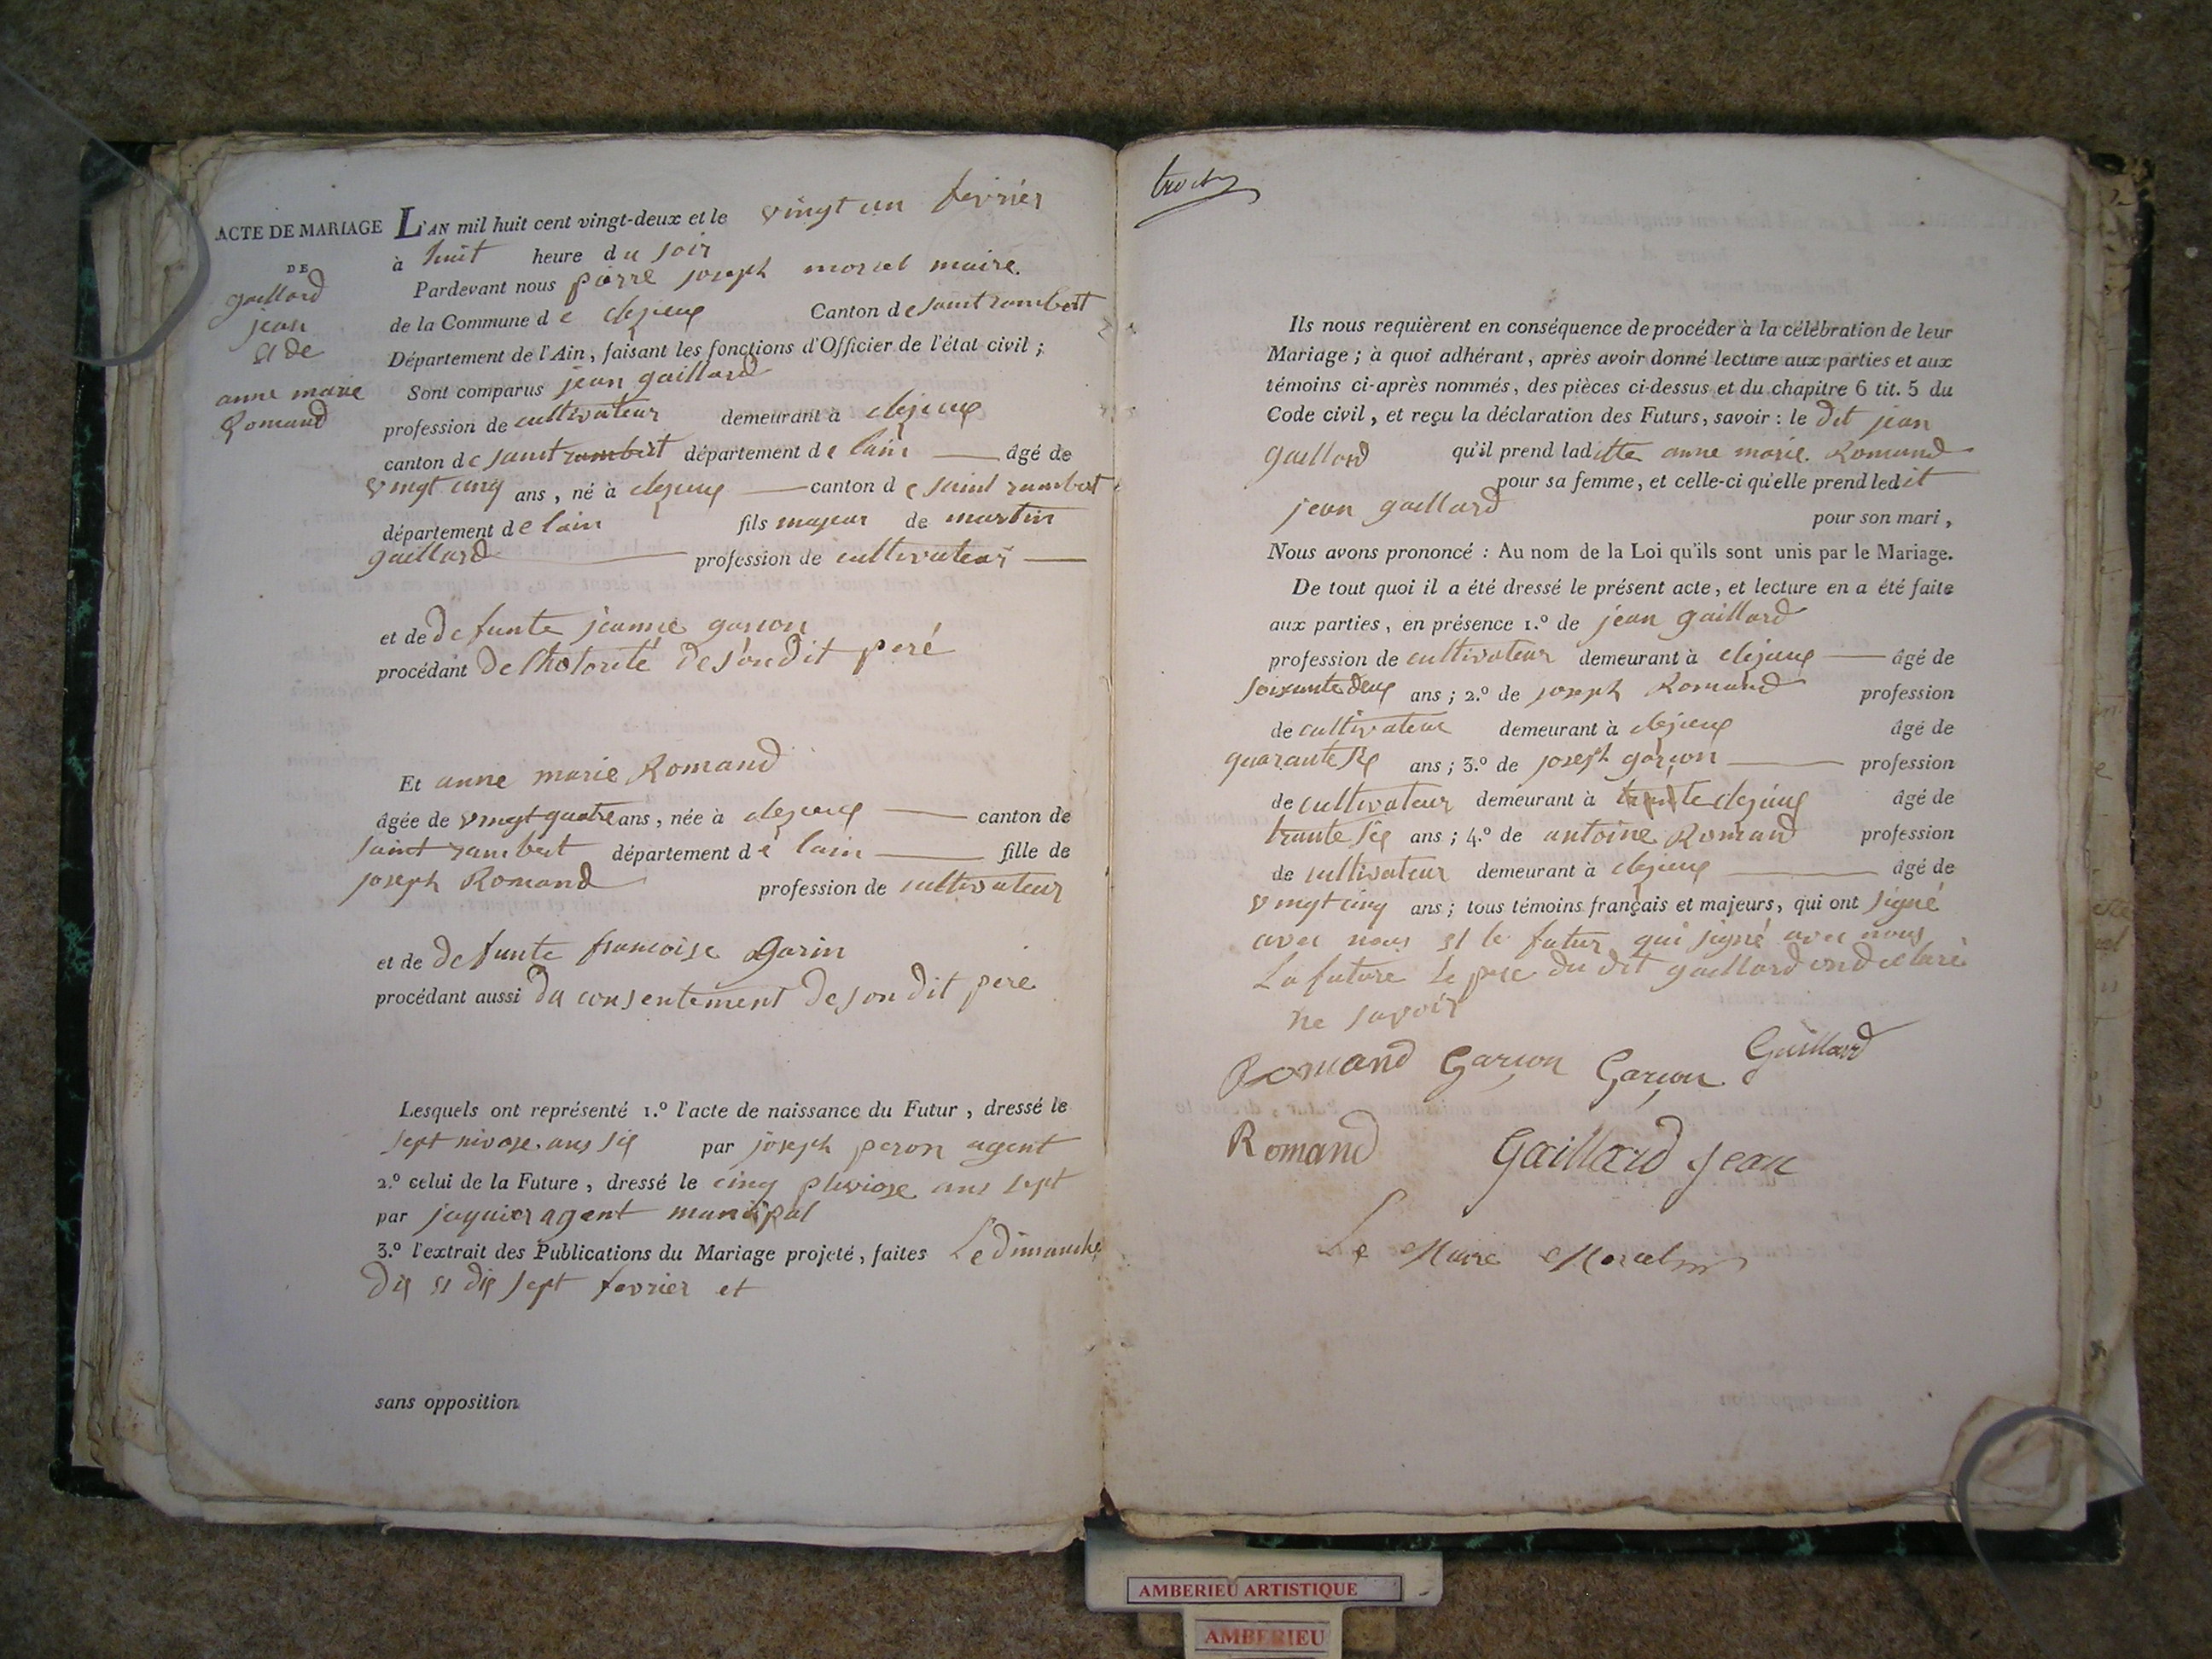 ACTE DE MARIAGE
DE
gaillard
jean
et de
anne marie
Romand
L'AN mil huit cent vingt-deux et le vingt un fevrier
à huit heure du soir
Pardevant nous pierre joseph morcel maire
de la Commune de clezieux Canton de saint rambert
Département de l'Ain, faisant les fonctions d'Officier de l'état civil ;
Sont comparus jean gaillard
profession de cultivateur demeurant à clezieux
canton de saint rambert département de lain âgé de
vingt cinq ans, né à clezieux canton de saint rambert
département de lain fils majeur de martin
gaillard profession de cultivateur
et de defunte jeanne garcon
procédant de lhotorité desondit peré
Et anne marie Romand
âgée de vingt quatre ans, née à clezieux canton de
saint rambert département de lain fille de
joseph Romand profession de cultivateur
et de defunte francoise garin
procédant aussi du consentement de son dit pere
Lesquels ont représenté 1.º l'acte de naissance du Futur, dressé le
sept nivose ans six par joseph peron agent
2.º celui de la Future, dressé le cinq pluviose ans sept
par jaquier agent munipal
3.º l'extrait des Publications du Mariage projeté, faites Le dimanche
dix et dix sept fevrier et
sans opposition
Ils nous requièrent en conséquence de procéder à la célébration de leur
Mariage ; à quoi adhérant, après avoir donné lecture aux parties et aux
témoins ci-après nommés, des pièces ci-dessus et du chapitre 6 tit. 5 du
Code civil, et reçu la déclaration des Futurs, savoir : le dit jean
gaillard qu'il prend laditte anne marie Romand
pour sa femme, et celle-ci qu'elle prend ledit
jean gaillard pour son mari,
Nous avons prononcé : Au nom de la Loi qu'ils sont unis par le Mariage.
De tout quoi il a été dressé le présent acte, et lecture en a été faite
aux parties, en présence 1.º de jean gaillard
profession de cultivateur demeurant à clezieux âgé de
soixante deux ans ; 2.º de joseph Romand profession
de cultivateur demeurant à clezieux âgé de
quarante six ans ; 3.º de joseph garçon profession
de cultivateur demeurant à clezieux âgé de
trante six ans ; 4.º de antoine Romand profession
de cultivateur demeurant à clezieux âgé de
vingt cinq ans ; tous témoins français et majeurs, qui ont signé
avec nous et le futur qui signé avec nous
La future le pere du dit gaillard ond declaré
ne savoir
Romand Garçon Garçon Gaillard
Romand Gaillard Jean
Le Maire Morcel
AMBERIEU ARTISTIQUE
AMBERIEU